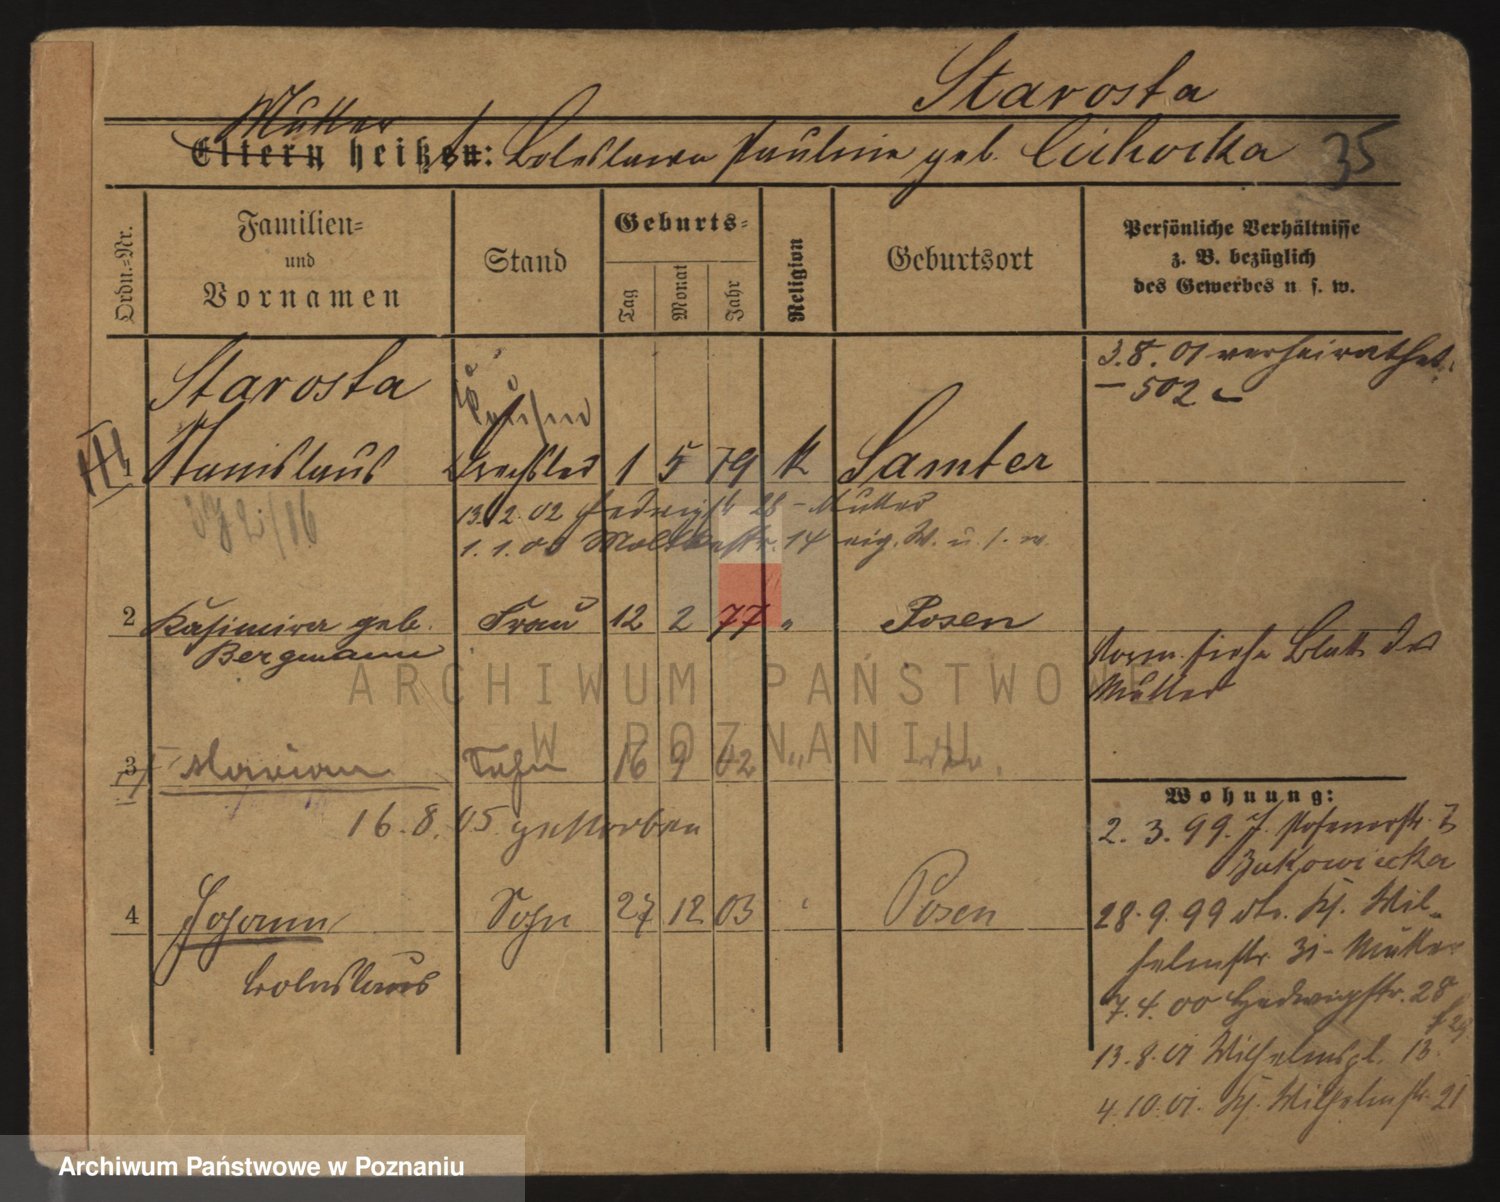 Starosta
Mutter
Eltern heißen: Boleslawa Pauline geb. Cichocka
35
Ordn.-Nr.
Familien-
und
Vornamen
Stand
Geburts-
Tag
Monat
Jahr
Religion
Geburtsort
Persönliche Verhältnisse
z. B. bezüglich
des Gewerbes u. s. w.
Starosta
3.8.01 verheirathet
– 502
1 Stanislaus Drechsler 1 5 79 k Samter
13.2.02 Hedwigstr 28 – Mutter
1. 1. 00 Moltkestr. 14 eig. W. u. s. w.
2 Kasimira geb. Frau 12 2 77 " Posen
Bergmann
Norm. siehe Blatt der
Mutter
3 Marian Sohn 16 9 02 "
16.8.05 gestorben
Wohnung:
2. 3. 99. J. Posenerstr.
Bukowiecka
4 Johann Sohn 27 12 03 Posen
Boleslaus
28.9.99 Wil-
helmstr. Mutter
7.4.00 Hedwigstr. 28
13.8.01 Wilhelmspl. 13
4.10.01. Wilhelmstr. 21
ARCHIWUM PAŃSTWOWE
W POZNANIU
Archiwum Państwowe w Poznaniu